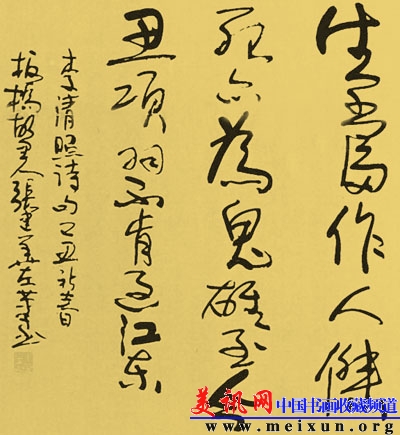 生當作人傑
死亦為鬼雄至今
思項羽不肯過江东
李清照詩句己丑新春
板橋故里人張左筆
美讯网 中国书画收藏频道
www.meixun.org